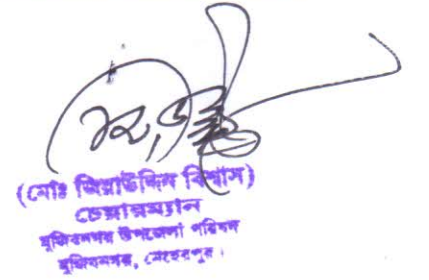 (মোঃ জিয়াউদ্দিন বিশ্বাস)
চেয়ারম্যান
মুজিবনগর উপজেলা পরিষদ
মুজিবনগর, মেহেরপুর।